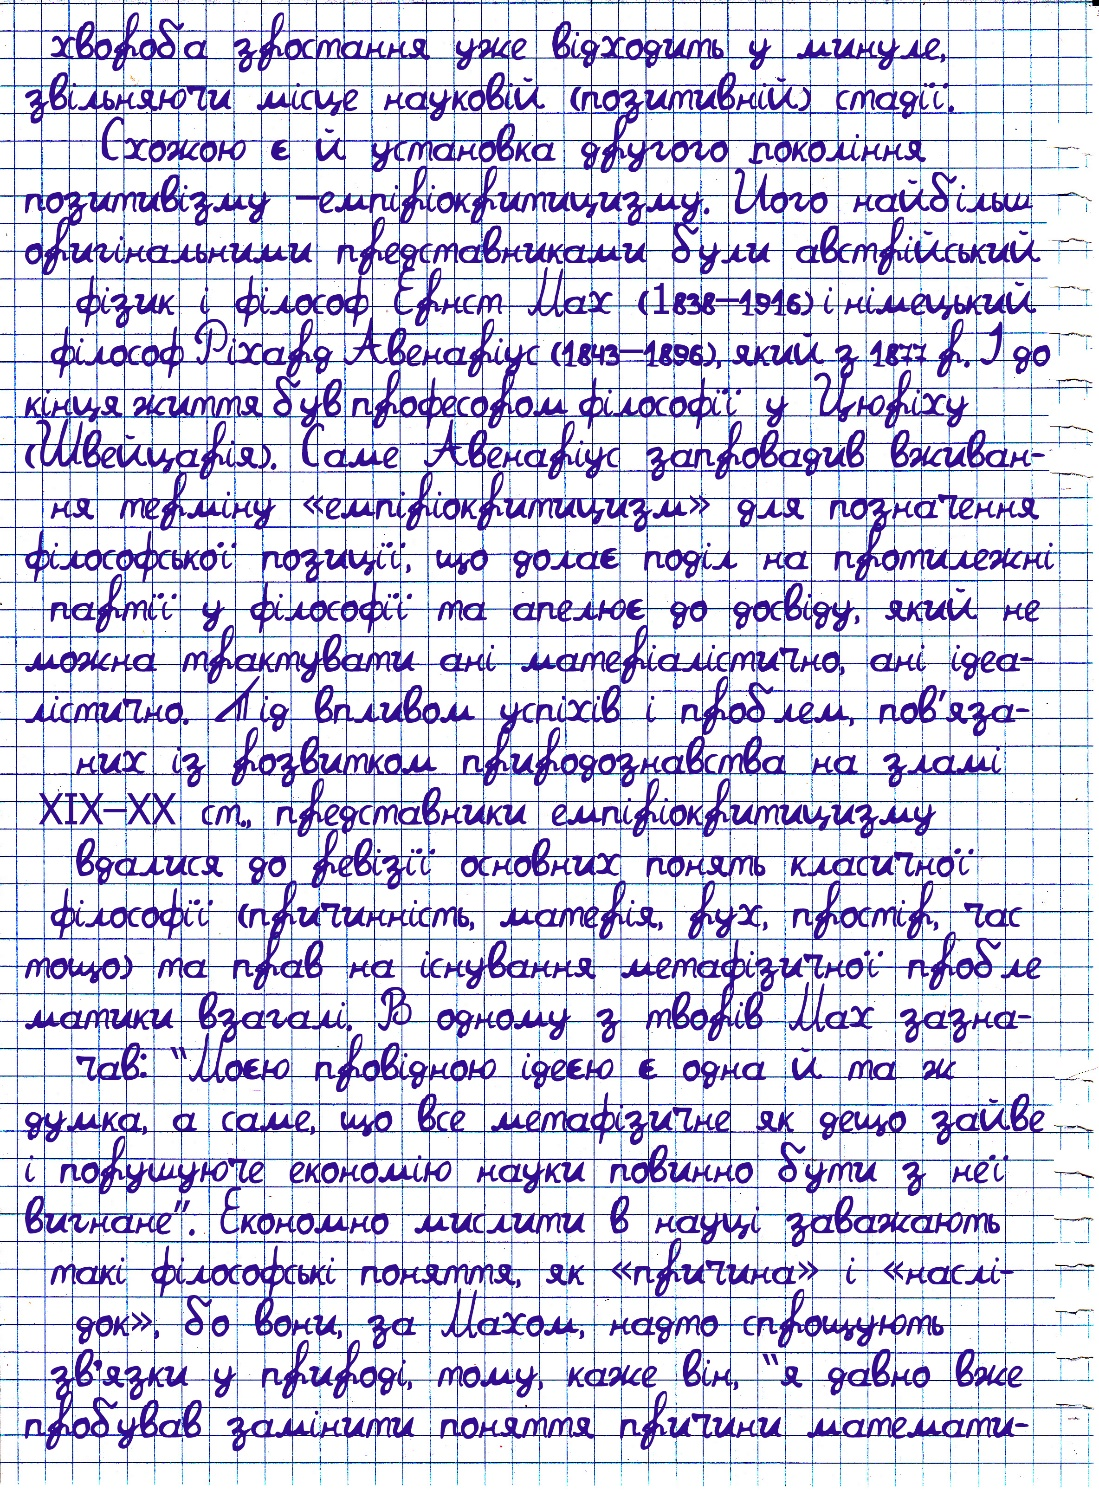 хвороба зростання уже відходить у минуле,
звільняючи місце науковій (позитивній) стадії.
Схожою є й установка другого покоління
позитивізму –емпіріокритицизму. Його найбільш
оригінальними представниками були австрійський
фізик і філософ Ернст Мах (1838–1916) і німецький
філософ Ріхард Авенаріус (1843–1896), який з 1877 р. І до
кінця життя був професором філософії у Цюріху
(Швейцарія). Саме Авенаріус запровадив вживан-
ня терміну «емпіріокритицизм» для позначення
філософської позиції, що долає поділ на протилежні
партії у філософії та апелює до досвіду, який не
можна трактувати ані матеріалістично, ані ідеа-
лістично. Під впливом успіхів і проблем, пов'яза-
них із розвитком природознавства на зламі
XIX–XX ст., представники емпіріокритицизму
вдалися до ревізії основних понять класичної
філософії (причинність, матерія, рух, простір, час
тощо) та прав на існування метафізичної пробле
матики взагалі. В одному з творів Мах зазна-
чав: "Моєю провідною ідеєю є одна й та ж
думка, а саме, що все метафізичне як дещо зайве
і порушуюче економію науки повинно бути з неї
вигнане". Економно мислити в науці заважають
такі філософські поняття, як «причина» і «наслі-
док», бо вони, за Махом, надто спрощують
зв'язки у природі, тому, каже він, "я давно вже
пробував замінити поняття причини математи-